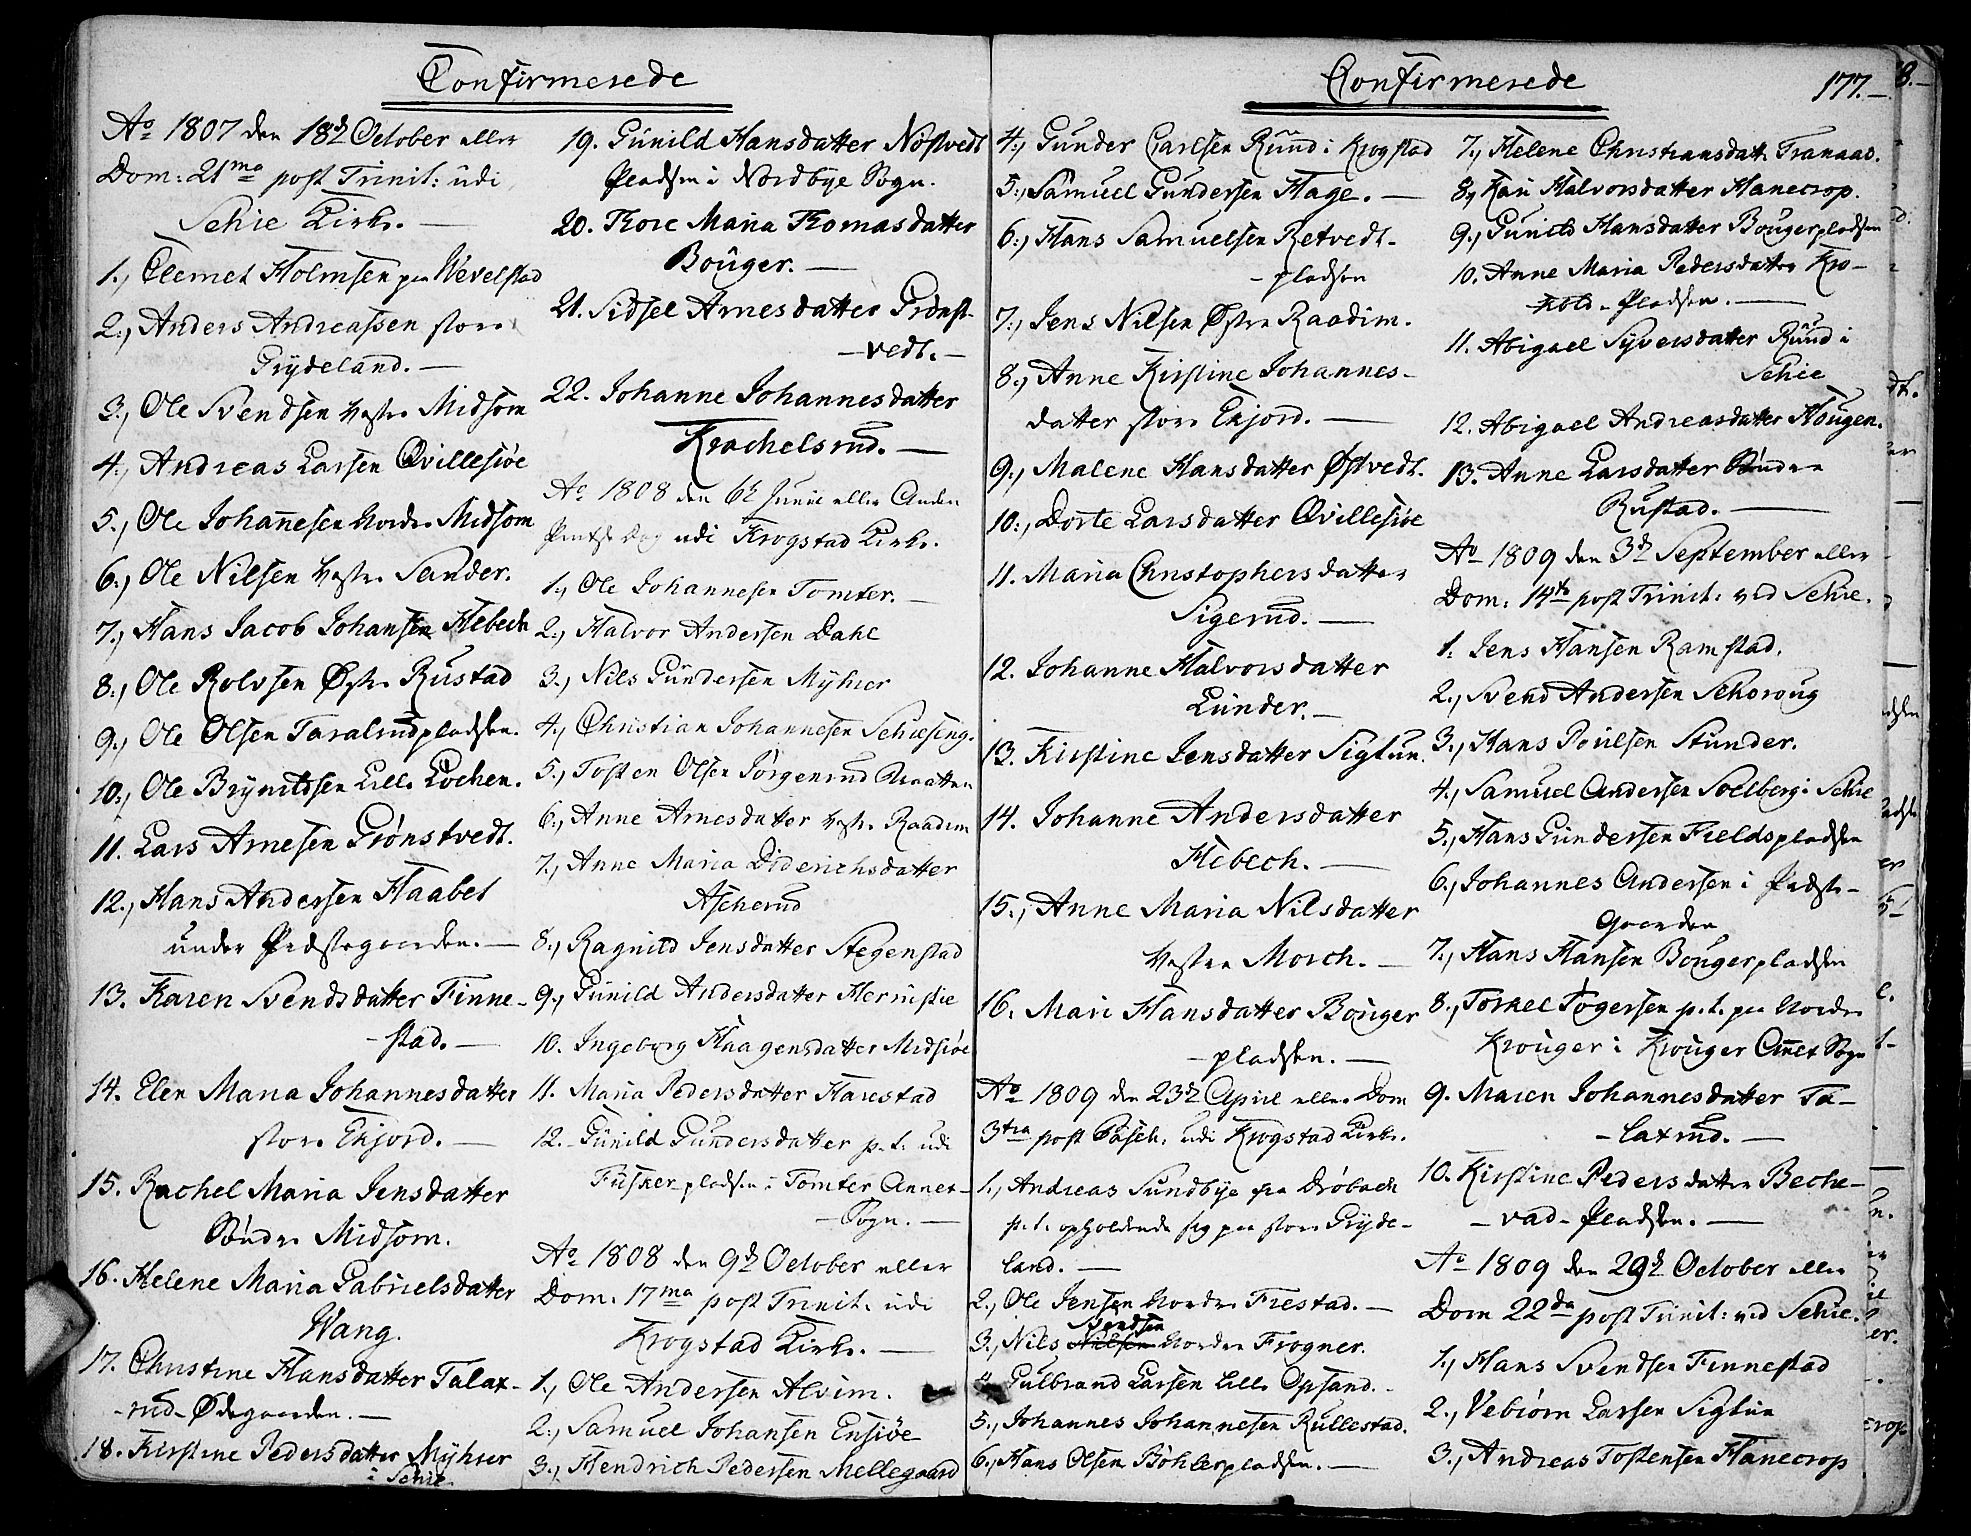 Confirmerede
Ao 1807 den 18de October eller
Dom: 21ma post Trinit: udi
Schie Kirke. —
1., Clemet Holmsen paa Wevelstad
2., Anders Andreassen store
Grydeland. —
3., Ole Svendsen Vestre Midsom
4., Andreas Larsen Qvillesiöe
5., Ole Johannesen Nordre Midsom
6., Ole Nilsen Vestre Sander.
7., Hans Jacob Johansen Hebech
8., Ole Rolvsen Østre Rustad
9., Ole Olsen Taralrudpladsen.
10., Ole Brynildsen Lille Löchen.
11. Lars Arnesen Grönstvedt.
12., Hans Andersen Haabet
under Præstegaarden. —
13. Karen Svendsdatter Finne-
-stad. —
14. Elen Maria Johannesdatter
store Ekjord. —
15. Rachel Maria Jensdatter
Söndre Midsom.
16. Helene Maria Gabrielsdatter
Wang.
17. Christine Hansdatter Talax-
-rud-Ødegaarden. —
18. Kirstine Pedersdatter Myhrer
i Schie
19. Gunild Hansdatter Nöstvedt
Pladsen i Nordbye Sogn.
20. Thore Maria Thomasdatter
Bouger. —
21. Sidsel Arnesdatter Grönst-
-vedt. —
22. Johanne Johannesdatter
Krachelsrud. —
Ao 1808 den 6te Junii eller Anden
Pintse Dag udi Krogstad Kirke.
1., Ole Johannesen Tomter. —
2., Halvor Andersen Dahl
3., Nils Gundersen Myhrer
4., Christian Johannesen Schiesing.
5., Tosten Olsen Jörgenrud
6., Anne Arnesdatter Vestre Raadim
7., Anne Maria Diderichsdatter
Ascherud
8., Ragnild Jensdatter Stegenstad
9., Gunild Andersdatter Herustie
10. Ingeborg Haagensdatter Midsiöe
11. Maria Pedersdatter Harestad
12. Gunild Gundersdatter p. t. udi
Fuskerpladsen i Tomter Annex-
-Sogn. —
Ao 1808 den 9de October eller
Dom. 17ma post Trinit. udi
Krogstad Kirke. —
1., Ole Andersen Alvim.
2., Samuel Johansen Ensiöe
3., Hendrich Pedersen Mellegaard
Confirmerede
177. —
4., Gunder Carlsen Ruud i Krogstad
5., Samuel Gundersen Hage. —
6., Hans Samuelsen Retvedt-
-pladsen
7., Jens Nilsen Østre Raadim.
8., Anne Kirstine Johannes-
datter store Ekjord. —
9., Malene Hansdatter Østvedt.
10., Dorte Larsdatter Qvillesiöe
11. Maria Christophersdatter
Sigerud. —
12. Johanne Halvorsdatter
Lunder. —
13. Kirstine Jensdatter Sigtun.
14. Johanne Andersdatter
Hebech. —
15., Anne Maria Nilsdatter
Vestre Morch. —
16. Mari Hansdatter Bouger
-pladsen. —
Ao 1809 den 23de April eller Dom
3tia post Pasch. udi Krogstad Kirke.
1., Andreas Sundbye fra Dröbach
p. t. opholdende sig paa store Gryde-
land. —
2., Ole Jensen Nordre Frestad. —
Svendsen
3., Nils Nilsen Nordre Frogner.
4. Gulbrand Larsen Lille Opsand. —
5., Johannes Johannesen Rullestad.
6., Hans Olsen Böhlerpladsen. —
7., Helene Christiansdatter Franaas.
8., Kari Halvorsdatter Hanecrop.
9., Gunild Hansdatter Bougerpladsen
10. Anne Maria Pedersdatter Kro-
-kold-Pladsen. —
11. Abigael Syversdatter Ruud i
Schie
12. Abigael Andreasdatter Hougen.
13. Anne Larsdatter Söndre
Rustad. —
Ao 1809 den 3de September eller
Dom. 14de post Trinit. ved Schie.
1. Jens Hansen Ramstad.
2., Svend Andersen Schoroug
3., Hans Poulsen Stunder.
4., Samuel Andersen Soelberg i Schie
5., Hans Gundersen Fieldspladsen
6., Johannes Andersen i Præste-
Gaarden
7., Hans Hansen Bougerpladsen
8., Torkel Togersen p. t. paa Nordre
Krouger i Krouger Annex Sogn
9. Maren Johannesdatter Ta-
-laxrud. —
10. Kirstine Pedersdatter Beche-
-vad-Pladsen. —
Ao 1809 den 29de October eller
Dom 22da post Trinit: ved Schie.
1., Hans Svendsen Finnestad
2., Vebiörn Larsen Sigtun
3., Andreas Tostensen Hanecrop